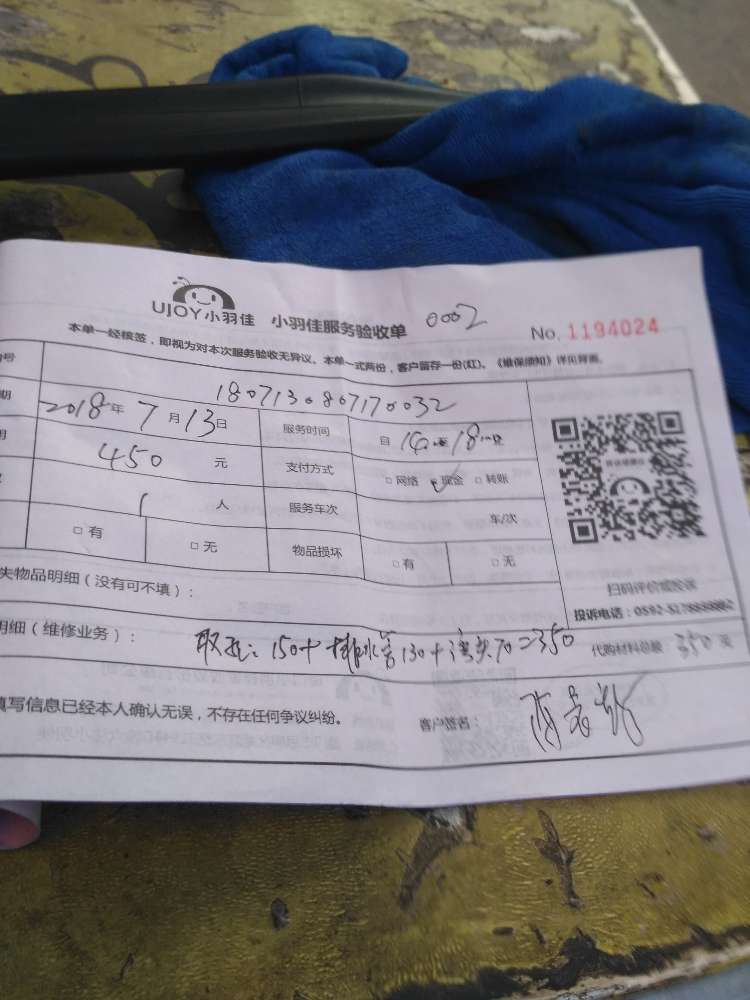 UJOY小羽佳 小羽佳服务验收单 0002 No. 1194024
本单一经核签，即视为对本次服务验收无异议。本单一式两份，客户留存一份(红)。《维保须知》详见背面。
号 180713080717 0032
期 2018年7月13日 服务时间 自 14 至 18
450 元 支付方式 □网络 ☑现金 □转账
1 人 服务车次 车/次
□有 □无 物品损坏 □有 □无
失物品明细（没有可不填）：
扫码评价或投诉
投诉电话：0592-5178
明细（维修业务）： 150+排水管130+ 70=350 代购材料总额：350元
填写信息已经本人确认无误，不存在任何争议纠纷。 客户签名：